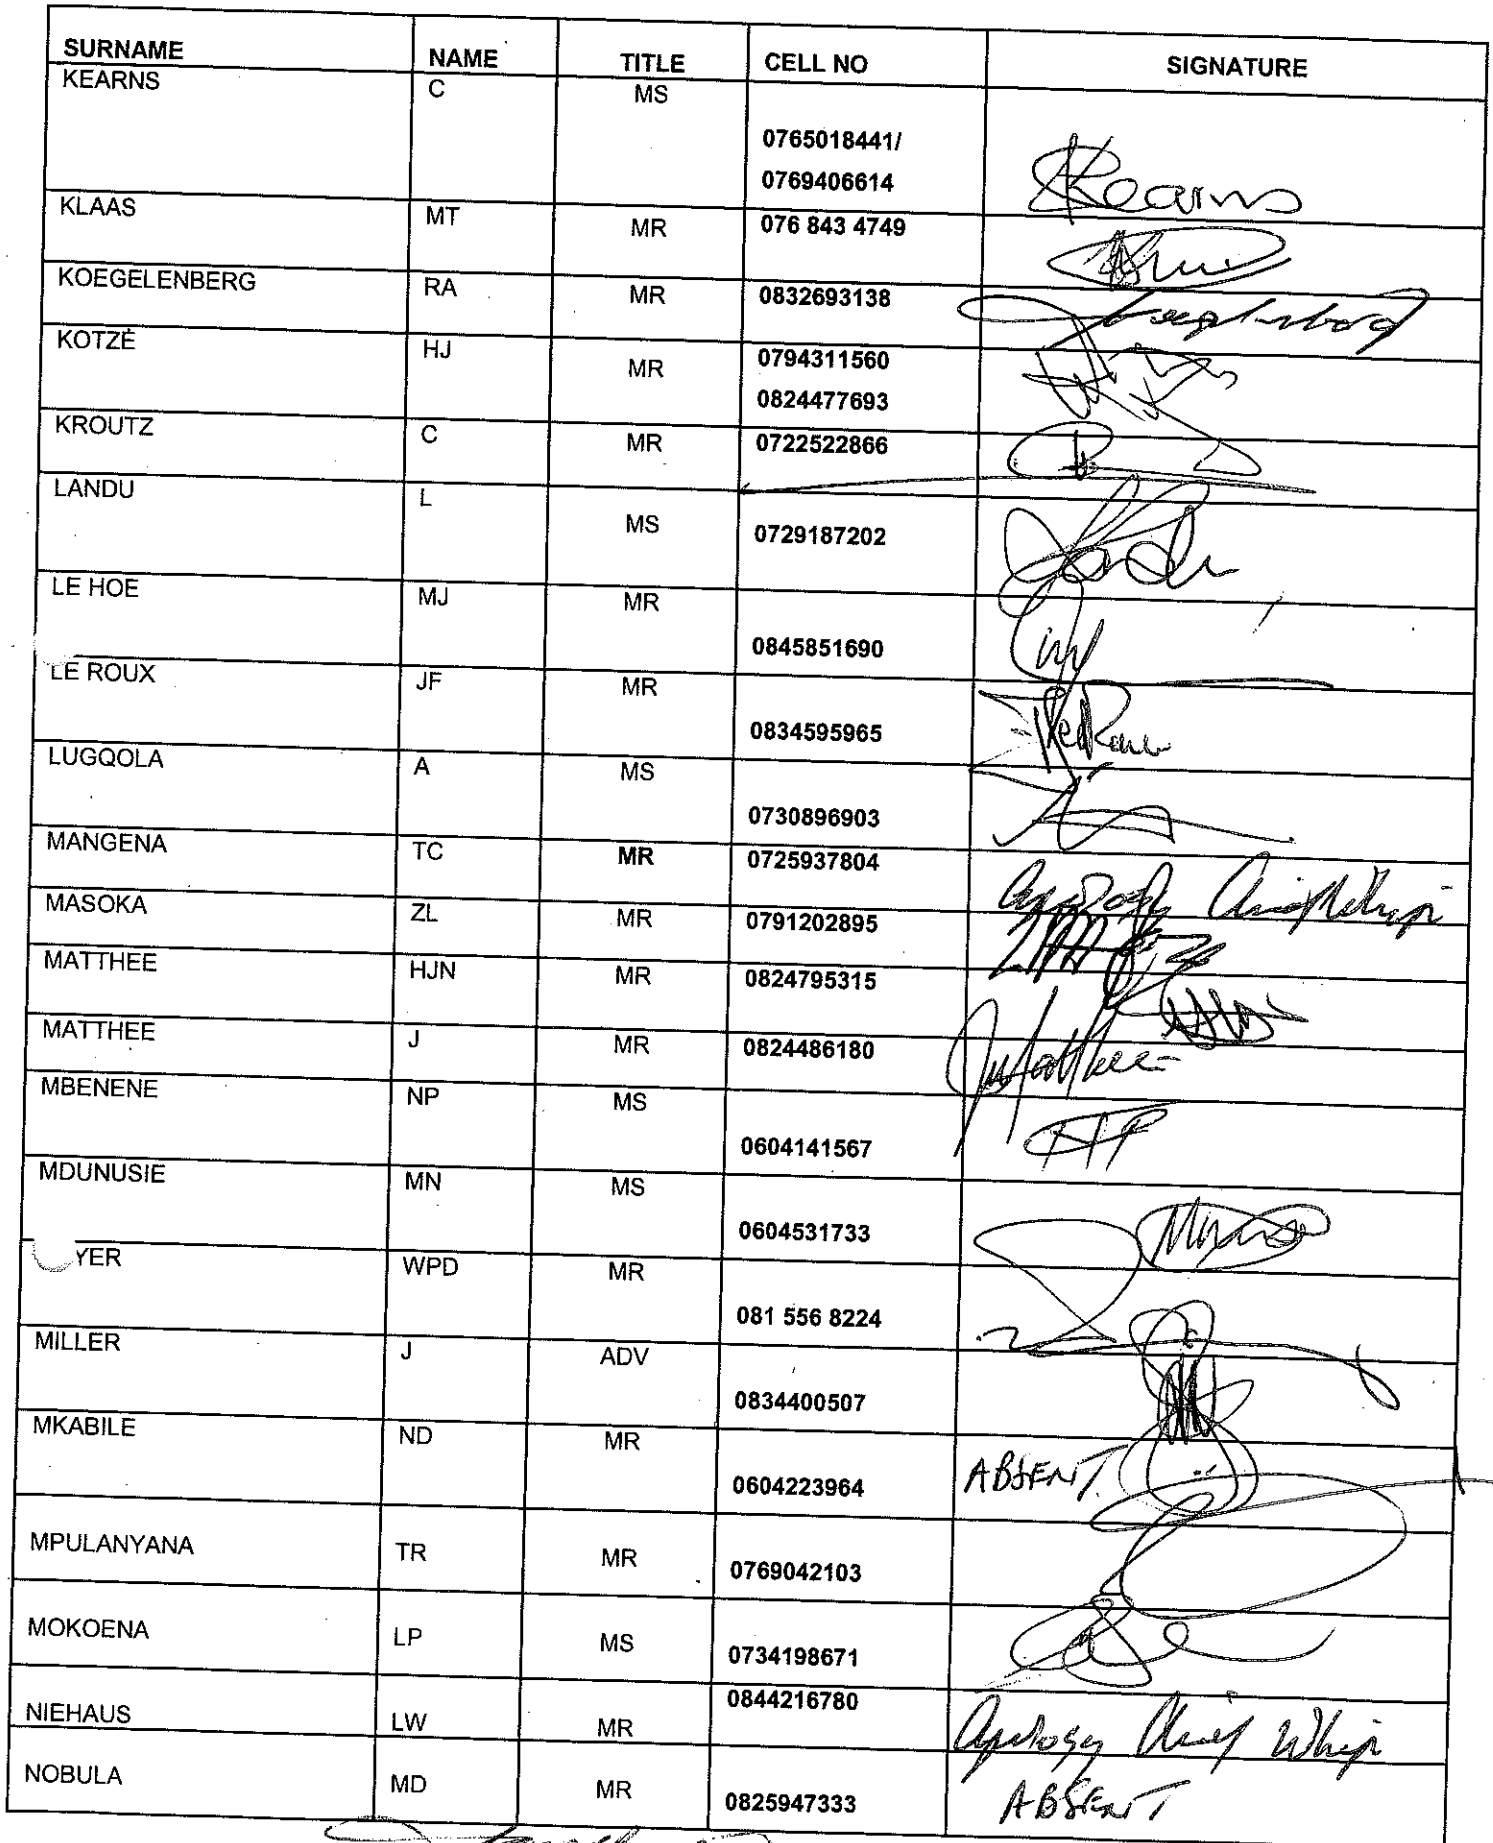 SURNAME NAME TITLE CELL NO SIGNATURE
KEARNS C MS 0765018441/
0769406614 Kearns
KLAAS MT MR 076 843 4749
KOEGELENBERG RA MR 0832693138
KOTZÉ HJ MR 0794311560
0824477693
KROUTZ C MR 0722522866
LANDU L MS 0729187202
LE HOE MJ MR 0845851690
LE ROUX JF MR 0834595965
LUGQOLA A MS 0730896903
MANGENA TC MR 0725937804 Apology Chief Whip
MASOKA ZL MR 0791202895
MATTHEE HJN MR 0824795315
MATTHEE J MR 0824486180
MBENENE NP MS 0604141567
MDUNUSIE MN MS 0604531733
YER WPD MR 081 556 8224
MILLER J ADV 0834400507
MKABILE ND MR 0604223964 ABSENT
MPULANYANA TR MR 0769042103
MOKOENA LP MS 0734198671
NIEHAUS LW MR 0844216780 Apology Chief Whip
NOBULA MD MR 0825947333 ABSENT